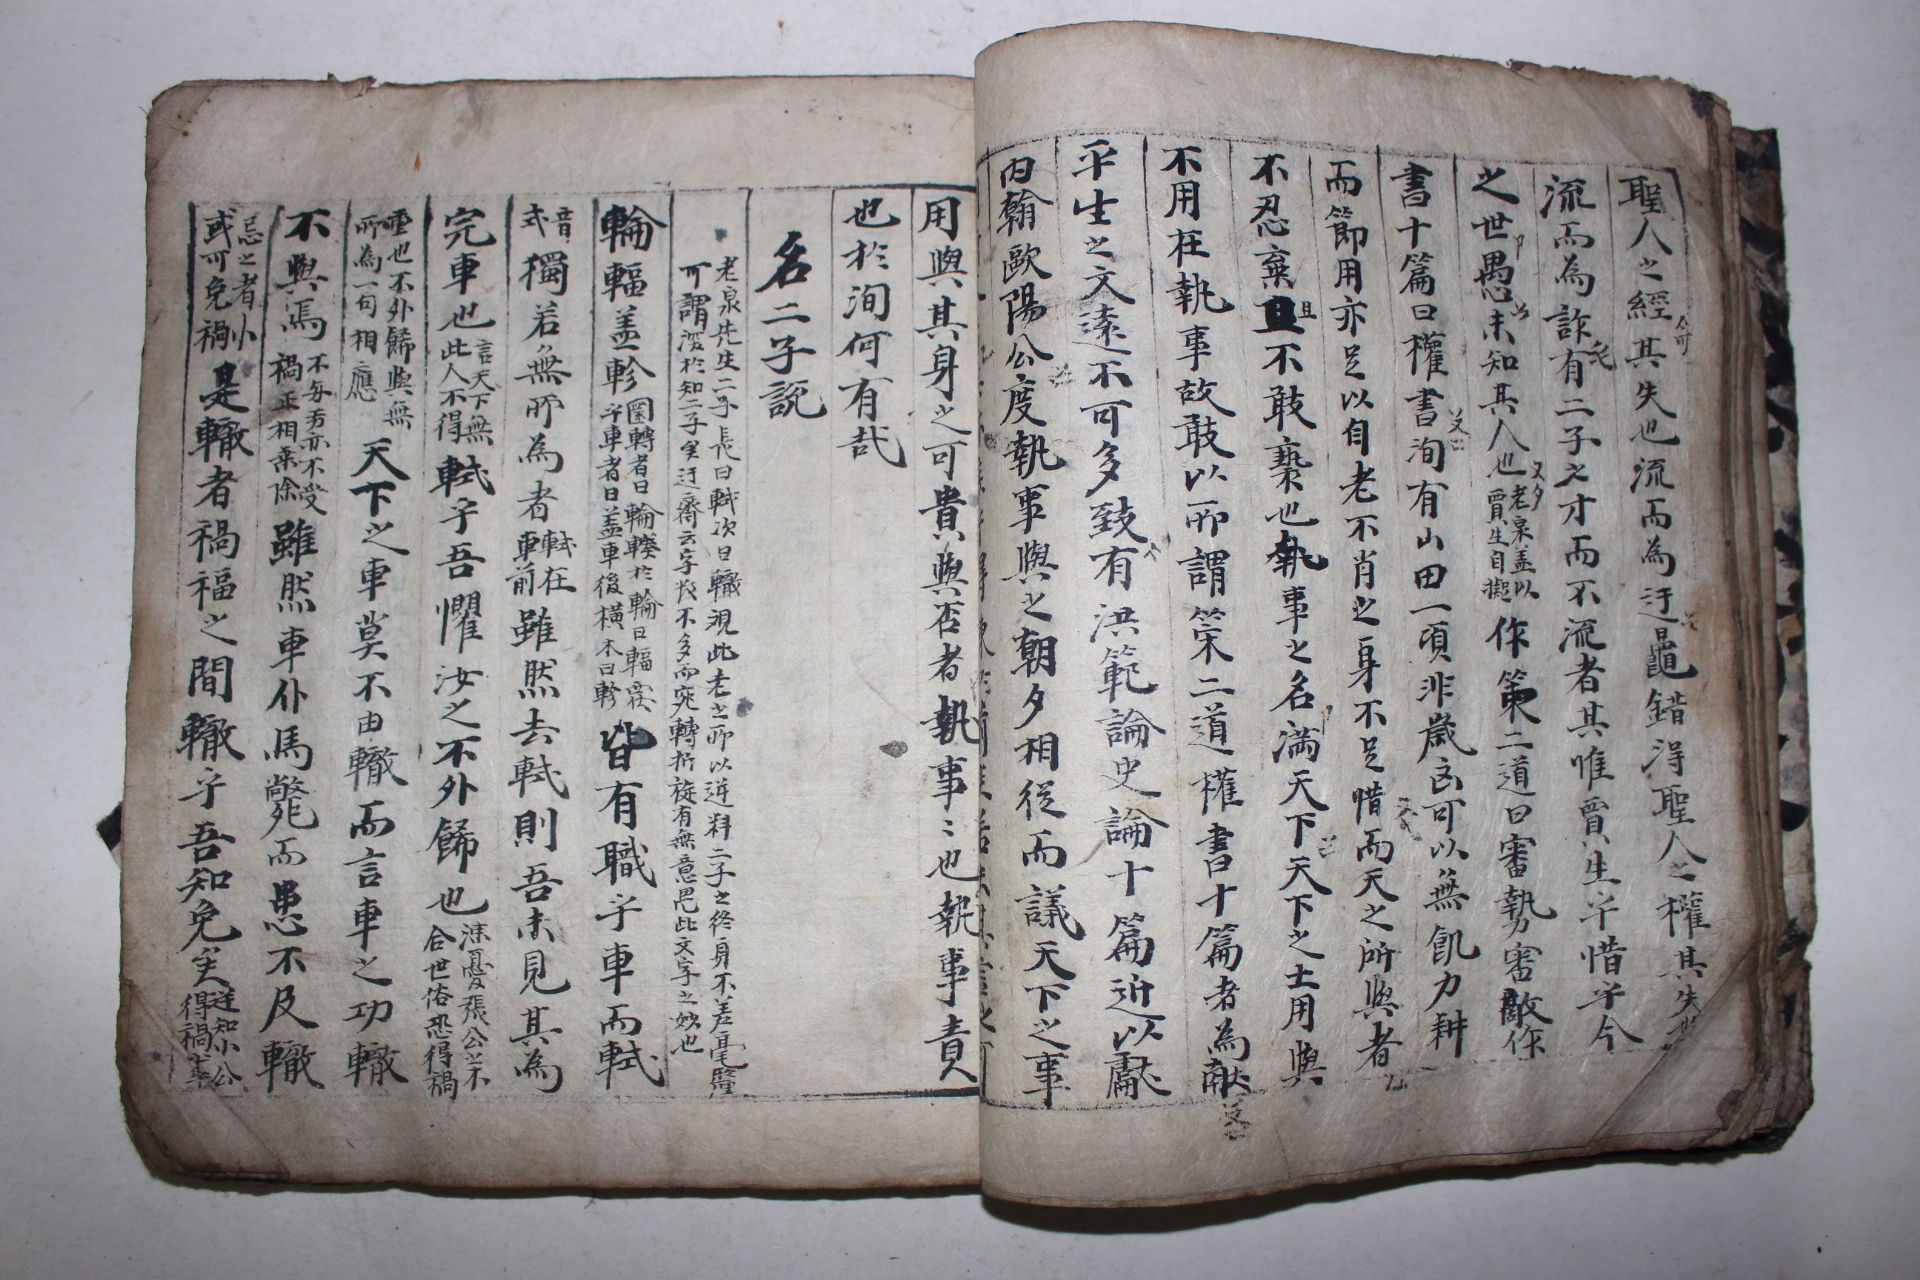 聖人之經其失也流而為迂鼂錯得聖人之權其失也
流而為詐有二子之才而不流者其惟賈生乎惜乎今
之世愚未知其人也老泉盖以賈生自擬作策二道曰審勢審敵作
書十篇曰權書洵有山田一頃非歲凶可以無飢力耕
而節用亦足以自老不肖之身不足惜而天之所與者
不忍棄且不敢褻也執事之名滿天下天下之士用與
不用在執事故敢以所謂策二道權書十篇者為献
平生之文遠不可多致有洪範論史論十篇近以獻
内翰歐陽公度執事與之朝夕相從而議天下之事
用與其身之可貴與否者執事〻也執事責
也於洵何有哉
名二子說
老泉先生二子長曰軾次曰轍視此老之所以逆料二子之終身不差毫釐
可謂深於知二子矣迂齋云字數不多而宛轉折旋有無意思此文字之妙也
輪輻盖軫圈轉者曰輪輳於輪曰輻
字車者曰盖車後橫木曰軫皆有職乎車而軾
音式獨若無所為者軾在車前雖然去軾則吾未見其為
完車也言天下無此人不得軾乎吾懼汝之不外歸也深憂張公之不合世俗恐得禍
重也不外歸與無所為一句相應天下之車莫不由轍而言車之功轍
不與焉不與芳亦不受禍正相乘除雖然車仆馬斃而患不及轍
忌之者小或可免禍是轍者禍福之間轍乎吾知免矣逆知小公得禍